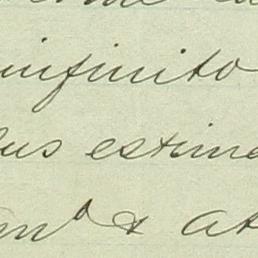 infinito
us estima
mº & At